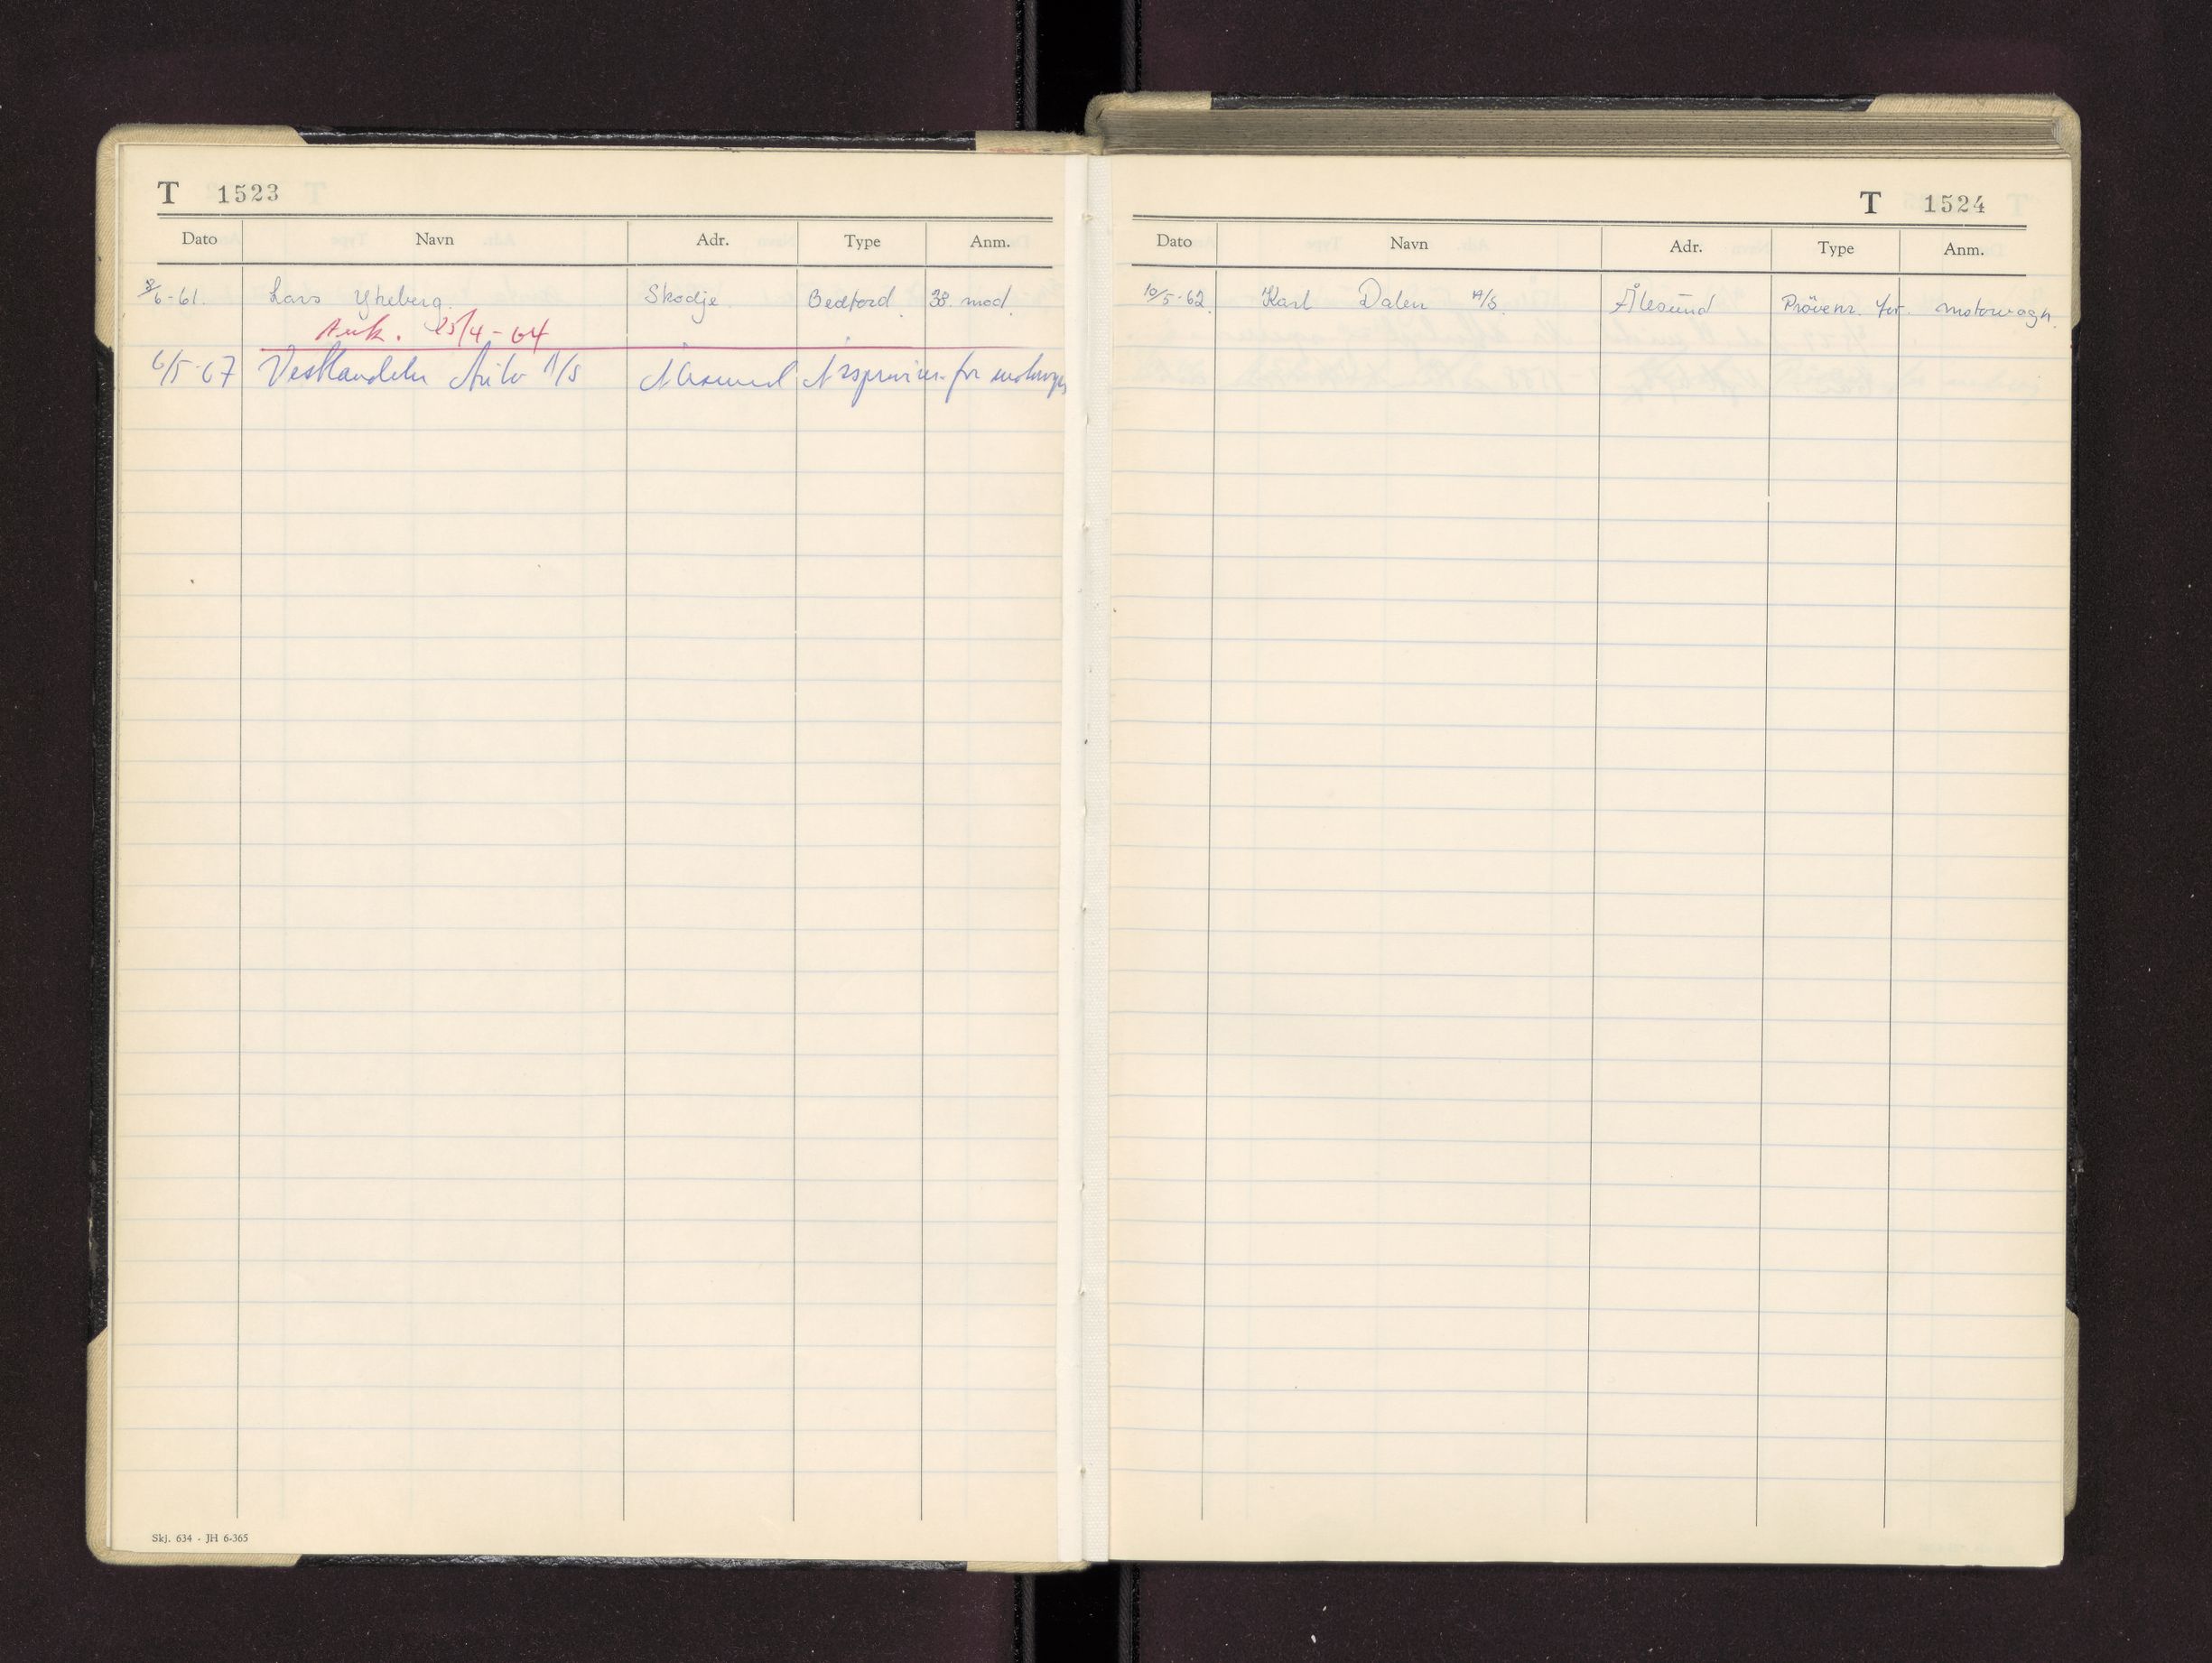 T 1523
Dato Navn Adr. Type Anm.
8/6-61. Lars Ytreberg. Skodje. Bedford. 38. mod.
Avk. 25/4-64
6/5-67 Vestlandske Auto A/S Ålesund Årsprøvenr. for motorvogn
Skj. 634 - JH 6-365
T 1524
Dato Navn Adr. Type Anm.
10/5-62. Karl Dalen A/S. Ålesund Prövenr. for. motorvogn.